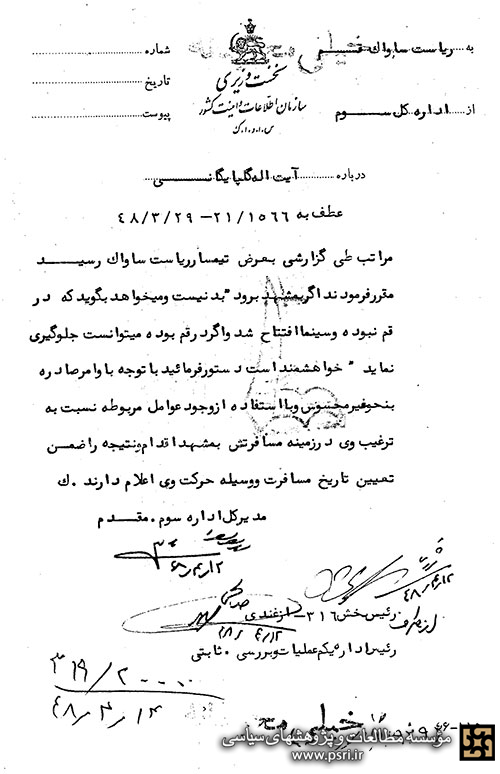 خیلی محرمانه
به ریاست ساواک قم
شماره
نخست وزیری
تاریخ
سازمان اطلاعات و امنیت کشور
از اداره کل سوم
پیوست
س.ا.و.ا.ک
درباره آیت اله گلپایگانی
عطف به ۲۱/۱۵۶۶ - ۴۸/۳/۲۹
مراتب طی گزارشی بعرض تیمسار ریاست ساواک رسید
مقرر فرمودند اگر بمشهد برود "بد نیست و میخواهد بگوید که در
قم نبوده و سینما افتتاح شد و اگر در قم بوده میتوانست جلوگیری
نماید" خواهشمند است دستور فرمائید با توجه با وامر صادره
بنحو غیر محسوس و با استفاده از وجود عوامل مربوطه نسبت به
ترغیب وی در زمینه مسافرتش بمشهد اقدام و نتیجه را ضمن
تعیین تاریخ مسافرت و وسیله حرکت وی اعلام دارند. ک
مدیر کل اداره سوم. مقدم
از طرف رئیس بخش ۳۱۶ - ازغندی
۴۸/۴/۱۲
رئیس اداره یکم عملیات و بررسی. ثابتی
۳۱۹/۲۰۰۰۰
خیلی محرمانه
مؤسسه مطالعات و پژوهشهای سیاسی
www.psri.ir